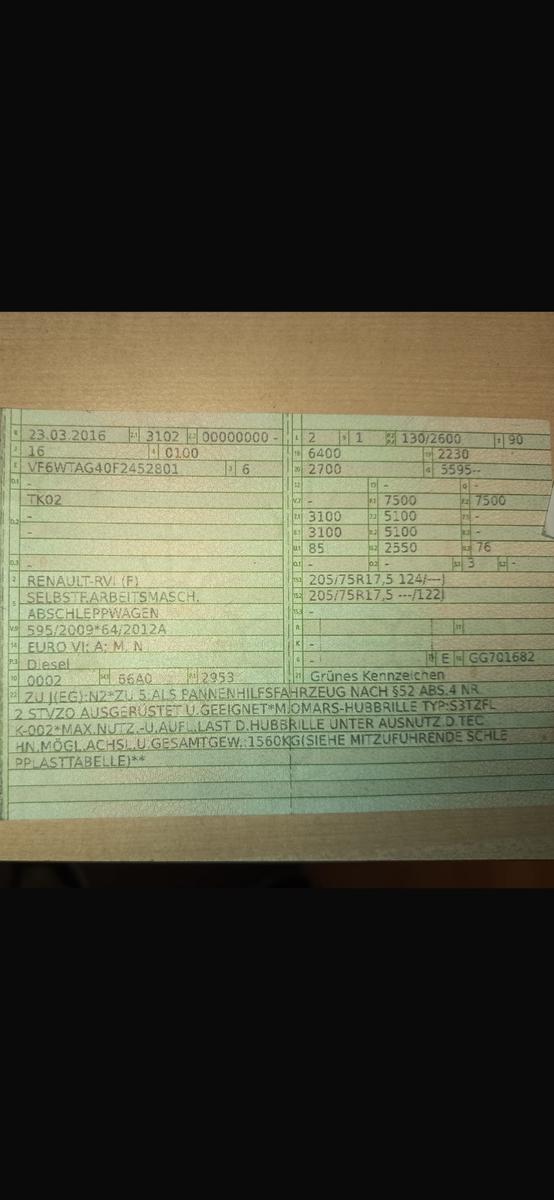 B 23.03.2016 2.1 3102 2.2 00000000 -
J 16 4 0100
E VF6WTAG40F2452801 3 6
D.1 -
TK02
D.2 -
-
D.3 -
2 RENAULT-RVI (F)
5 SELBSTF.ARBEITSMASCH.
ABSCHLEPPWAGEN
V.9 595/2009*64/2012A
14 EURO VI; A; M, N
P.3 Diesel
10 0002 14.1 66A0 P.1 2953
L 2 9 1 P.2/P.4 130/2600 T 90
18 6400 19 2230
20 2700 G 5595--
12 - 13 - Q -
V.7 - F.1 7500 F.2 7500
7.1 3100 7.2 5100 7.3 -
8.1 3100 8.2 5100 8.3 -
U.1 85 U.2 2550 U.3 76
O.1 - O.2 - S.1 3 S.2 -
15.1 205/75R17,5 124/---J
15.2 205/75R17,5 ---/122J
15.3 -
R - 11
K -
6 - 17 E 16 GG701682
21 Grünes Kennzeichen
22 ZU J(EG):N2*ZU 5:ALS PANNENHILFSFAHRZEUG NACH §52 ABS.4 NR.
2 STVZO AUSGERÜSTET U.GEEIGNET*M.OMARS-HUBBRILLE TYP:S3TZFL
K-002*MAX.NUTZ.-U.AUFL.LAST D.HUBBRILLE UNTER AUSNUTZ.D.TEC
HN.MÖGL.ACHSL.U.GESAMTGEW.:1560KG(SIEHE MITZUFÜHRENDE SCHLE
PPLASTTABELLE)**